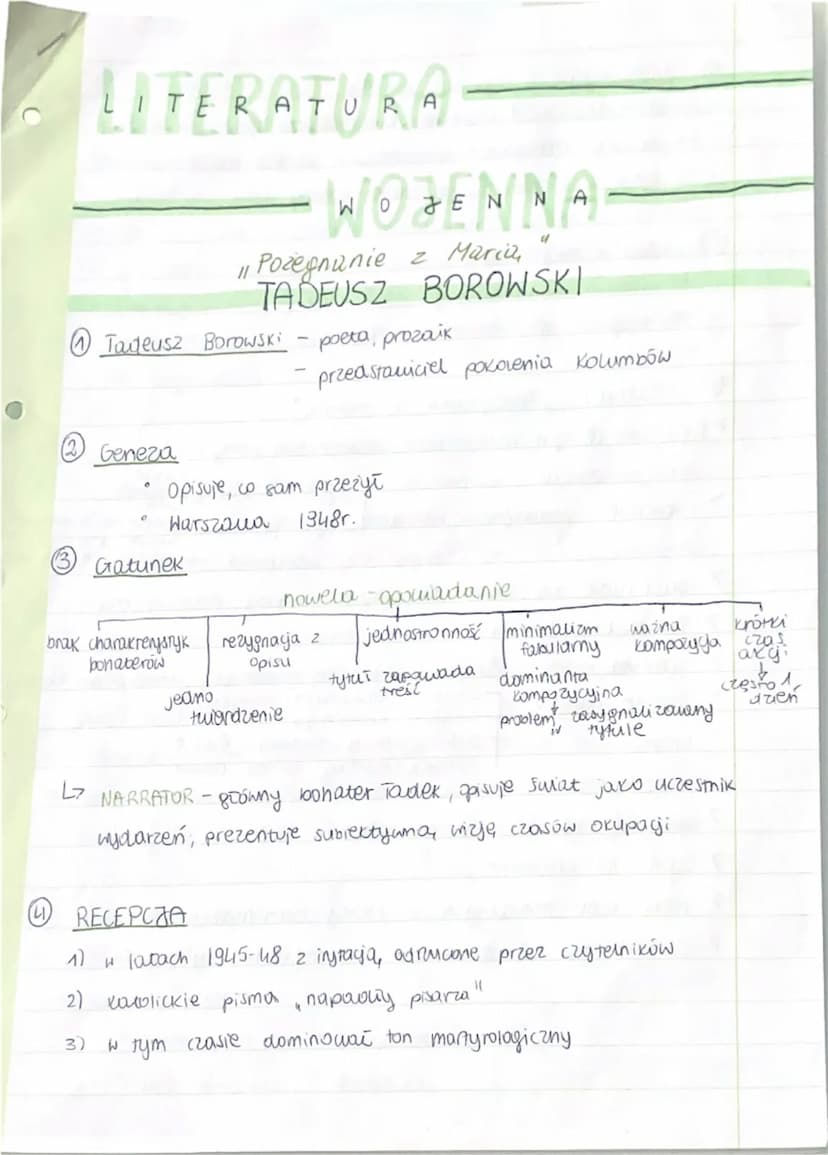 LITERATURA
WOJENNA
„Pożegnanie z Marią"
TADEUSZ BOROWSKI
① Tadeusz Borowski – poeta, prozaik
– przedstawiciel pokolenia Kolumbów
② Geneza
• Opisuje, co sam przeżył
• Warszawa 1948r.
③ Gatunek
nowela – opowiadanie
brak charakterystyk bohaterów
jedno twierdzenie
rezygnacja z opisu
jednostronność
tytuł zapowiada treść
minimalizm fabularny
dominanta kompozycyjna
↓
problem zasygnalizowany w tytule
ważna kompozycja
krótki czas akcji
↓
często 1 dzień
↳ NARRATOR – główny bohater Tadek, opisuje świat jako uczestnik
wydarzeń, prezentuje subiektywną wizję czasów okupacji
④ RECEPCJA
1) w latach 1945-48 z irytacją odrzucone przez czytelników
2) katolickie pisma „napadły pisarza"
3) w tym czasie dominował ton martyrologiczny